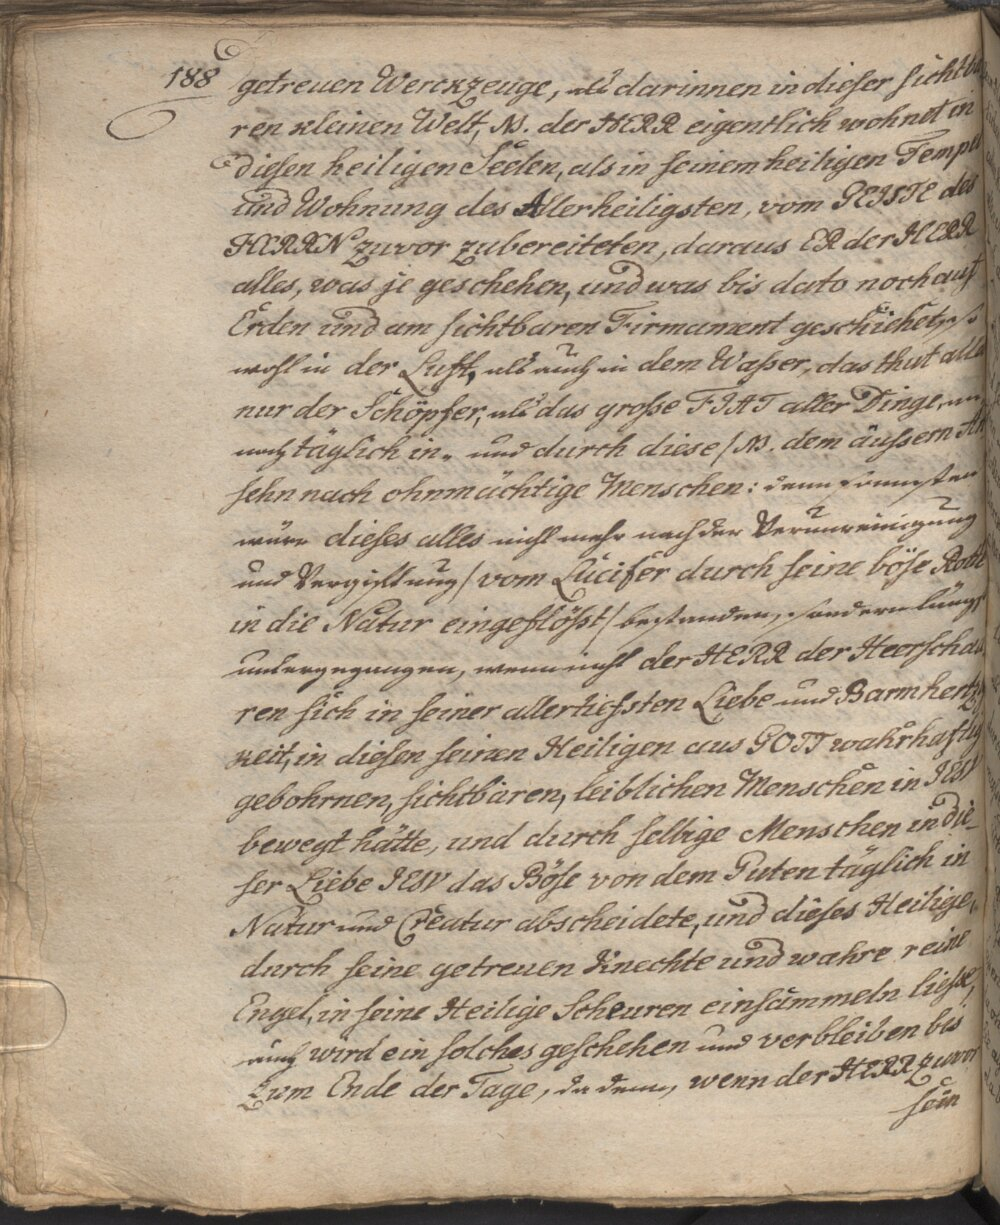 188
getreuen Werckzeuge, als darinnen in dieser sichtba
ren kleinen Welt, N. der HERR eigentlich wohnet in
diesen heiligen Seelen, als in seinem heiligen Tempel
und Wohnung des Allerheiligsten, vom GEISTE des
HERRN zuvor zubereiteten, daraus ER der HERR
alles, was je geschehen, und was bis dato noch auf
Erden und am sichtbaren Firmament geschiehet, so
wohl in der Luft, als auch in dem Waßer, das thut alles
nur der Schöpfer, als das große FIAT aller Dinge,
noch täglich in- und durch diese / N. dem äussern An
sehn nach ohnmächtige Menschen: denn sonnsten
wäre dieses alles nicht mehr nach der Verunreinigung
und Vergiftung / vom Lucifer durch seine böse Rotte
in die Natur eingeflößt / bestanden, sondern längst
untergegangen, wenn nicht der HERR der Heerscha
ren sich in seiner allertiefsten Liebe und Barmhertzig
keit, in diesen seinen Heiligen aus GOTT wahrhaftig
gebohrnen, sichtbaren, leiblichen Menschen in JESV
bewegt hätte, und durch selbige Menschen in die-
ser Liebe JESV das Böse von dem Guten täglich in
Natur und Creatur abscheidete, und dieses Heilige,
durch seine getreuen Knechte und wahre reine
Engel, in seine Heilige Scheuren einsammeln ließe,
auch wird ein solches geschehen und verbleiben bis
zum Ende der Tage, da denn, wenn der HERR zuvor
sein